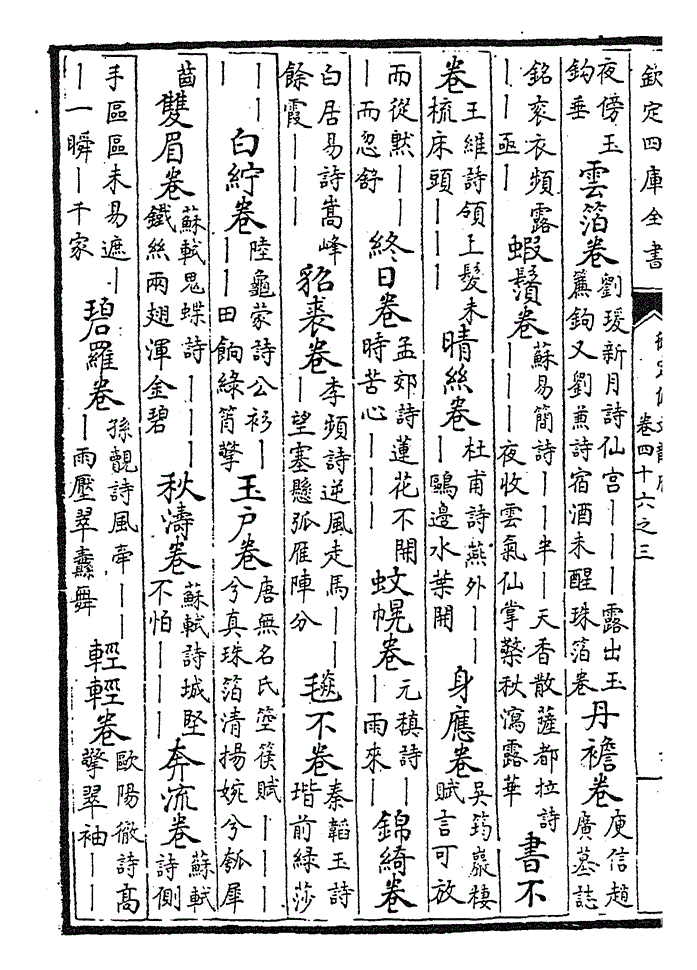 欽定四庫全書 卷四十六之三
夜傍玉鈎垂 雲箔卷 劉瑗新月詩仙宫｜｜｜露出玉簾鉤又劉兼詩宿酒未醒珠箔卷 丹襜卷 庾信趙廣墓誌
銘衮衣頻露｜｜亟｜ 蝦鬚卷 蘇易簡詩｜｜半｜天香散薩都拉詩｜｜｜夜收雲氣仙掌擎秋瀉露華 書不
卷 王維詩領上髮未梳床頭｜｜｜ 晴絲卷 杜甫詩燕外｜｜｜鷗邊水葉開 身應卷 吳筠巖棲賦言可放
而從黙｜｜｜而忽舒 終日卷 孟郊詩蓮花不開時苦心｜｜｜ 蚊幌卷 元稹詩｜｜｜雨來｜ 錦綺卷
白居易詩嵩峰餘霞｜｜｜ 貂裘卷 李頻詩逆風走馬｜｜｜望塞懸弧雁陣分 毯不卷 秦韜玉詩堦前緑莎
｜｜｜｜ 白紵卷 陸龜蒙詩公衫｜｜｜田餉綠筲擎 玉戶卷 唐無名氏箜篌賦｜｜｜兮真珠箔清揚婉兮瓠犀
齒 雙眉卷 蘇軾鬼蝶詩｜｜｜鐵絲兩翅渾金碧 秋濤卷 蘇軾詩城堅不怕｜｜｜ 奔流卷 蘇軾詩側
手區區未易遮｜｜一瞬｜千家 碧羅卷 孫覿詩風牽｜｜｜雨壓翠纛舞 輕輕卷 歐陽徹詩高擎翠袖｜｜